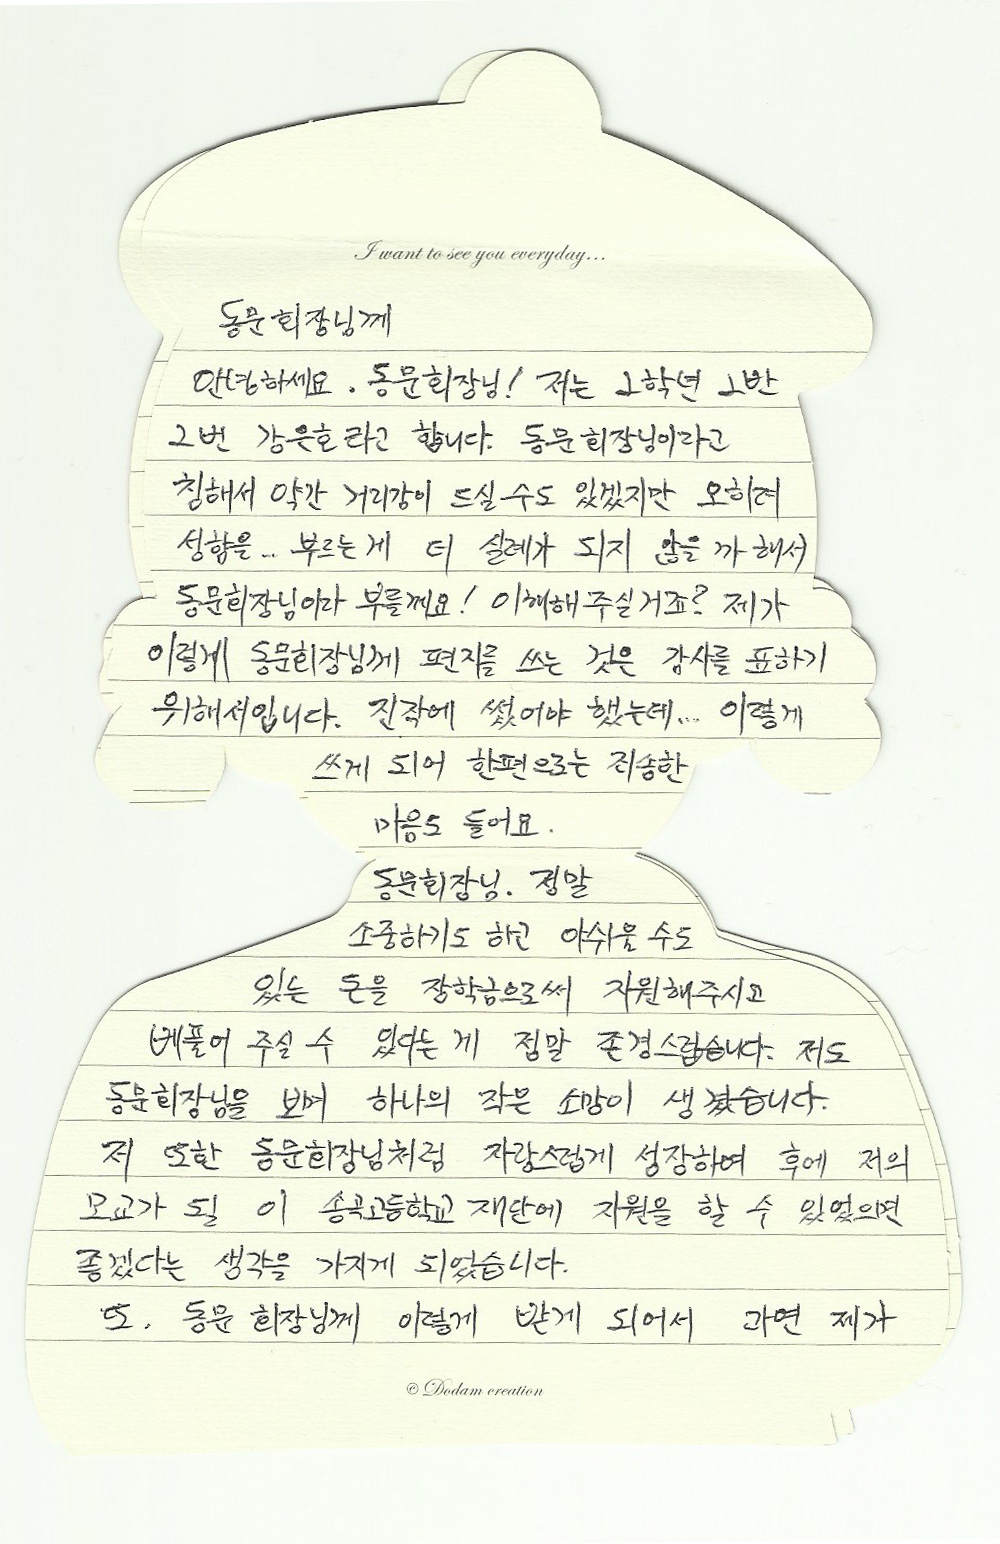 I want to see you everyday...
동문회장님께
안녕하세요. 동문회장님! 저는 2학년 2반
2번 강은호라고 합니다. 동문회장님이라고
칭해서 약간 거리감이 드실 수도 있겠지만 오히려
성함을... 부르는게 더 실례가 되지 않을까 해서
동문회장님이라 부를께요! 이해해주실거죠? 제가
이렇게 동문회장님께 편지를 쓰는 것은 감사를 표하기
위해서입니다. 진작에 썼어야 했는데... 이렇게
쓰게 되어 한편으로는 죄송한
마음도 들어요.
동문회장님. 정말
소중하기도 하고 아쉬울 수도
있는 돈을 장학금으로써 지원해주시고
베풀어 주실 수 있다는 게 정말 존경스럽습니다. 저도
동문회장님을 보며 하나의 작은 소망이 생겼습니다.
저 또한 동문회장님처럼 자랑스럽게 성장하여 후에 저의
모교가 될 이 송곡고등학교 재단에 지원을 할 수 있었으면
좋겠다는 생각을 가지게 되었습니다.
또. 동문회장님께 이렇게 받게 되어서 과연 제가
© Dodam creation